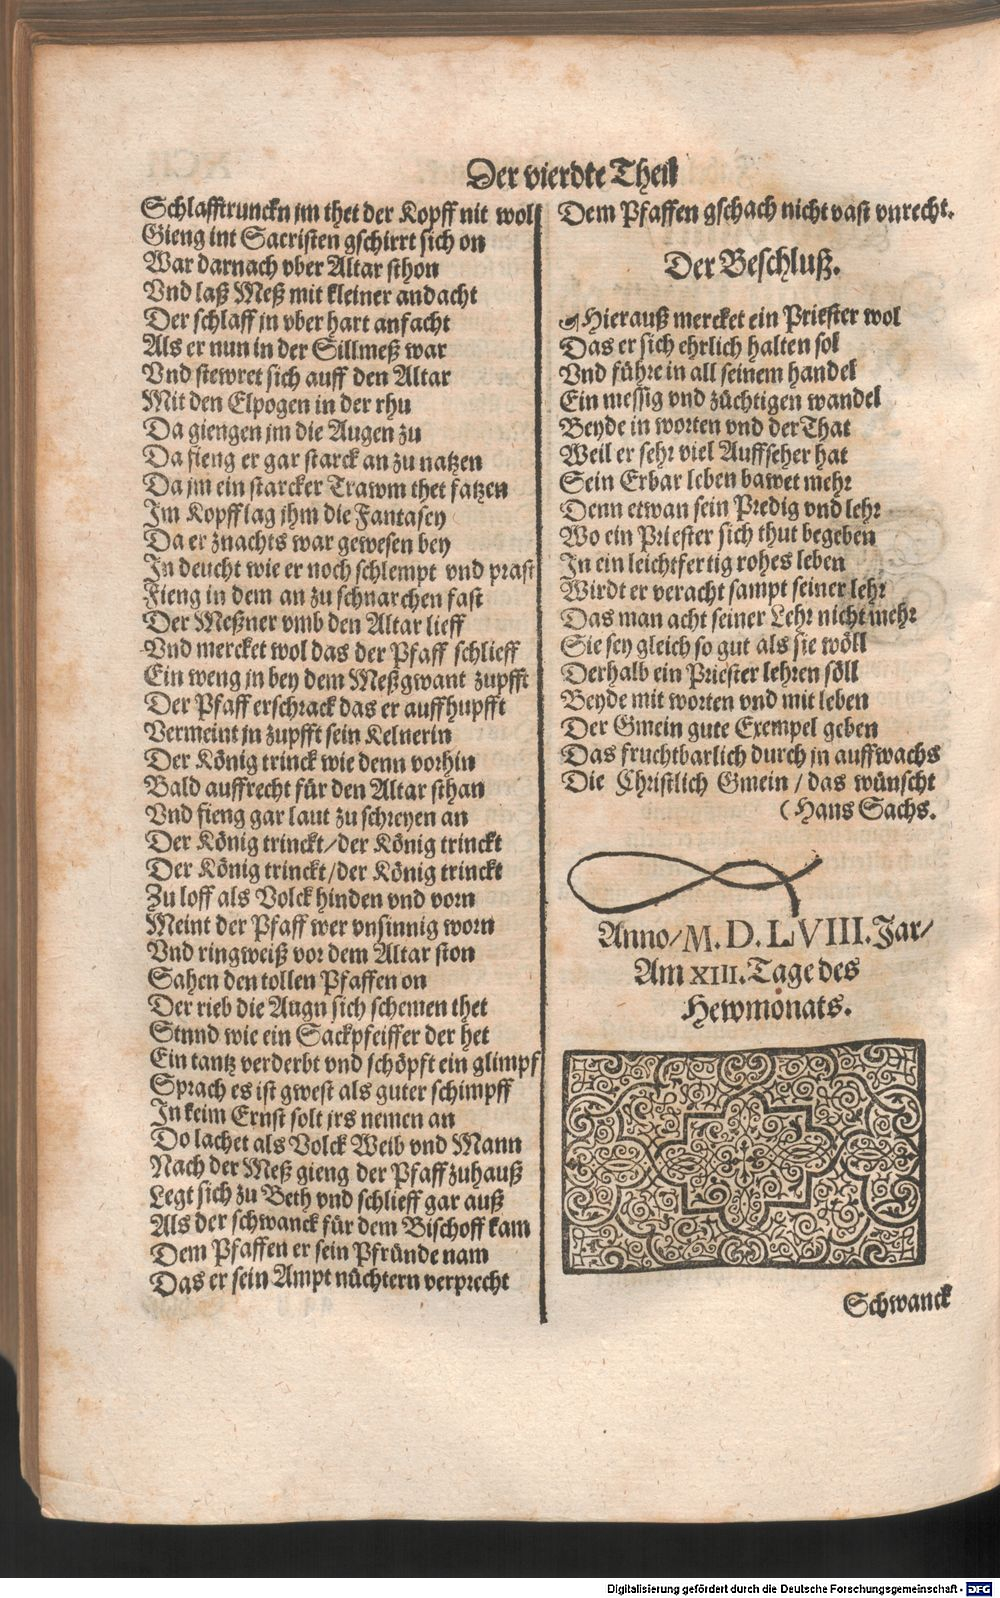 Der vierdte Theil
Schlafftrunckn jm thet der Kopff nit wol
Gieng int Sacristen gschirrt sich on
War darnach vber Altar sthon
Vnd laß Meß mit kleiner andacht
Der schlaff jn vber hart anfacht
Als er nun in der Sillmeß war
Vnd stewret sich auff den Altar
Mit den Elpogen in der rhu
Da giengen jm die Augen zu
Da fieng er gar starck an zu natzen
Da jm ein starcker Trawm thet fatzen
Im Kopff lag jhm die Fantasey
Da er znachts war gewesen bey
In deucht wie er noch schlempt vnd prast
Fieng in dem an zu schnarchen fast
Der Meßner vmb den Altar lieff
Vnd mercket wol das der Pfaff schlieff
Ein weng jn bey dem Meßgwant zupfft
Der Pfaff erschrack das er auffhupfft
Vermeint jn zupfft sein Kelnerin
Der König trinck wie denn vorhin
Bald auffrecht für den Altar sthan
Vnd fieng gar laut zu schreyen an
Der König trinckt/der König trinckt
Der König trinckt/der König trinckt
Zu loff als Volck hinden vnd vorn
Meint der Pfaff wer vnsinnig worn
Vnd ringweiß vor dem Altar ston
Sahen den tollen Pfaffen on
Der rieb die Augn sich schemen thet
Stnnd wie ein Sackpfeiffer der het
Ein tantz verderbt vnd schöpft ein glimpf
Sprach es ist gwest als guter schimpff
In keim Ernst solt jrs nemen an
Do lachet als Volck Weib vnd Mann
Nach der Meß gieng der Pfaff zuhauß
Legt sich zu Beth vnd schlieff gar auß
Als der schwanck für dem Bischoff kam
Dem Pfaffen er sein Pfründe nam
Das er sein Ampt nüchtern verprecht
Dem Pfaffen gschach nicht vast vnrecht.
Der Beschluß.
Hierauß mercket ein Priester wol
Das er sich ehrlich halten sol
Vnd führe in all seinem handel
Ein messig vnd züchtigen wandel
Beyde in worten vnd der That
Weil er sehr viel Auffseher hat
Sein Erbar leben bawet mehr
Denn etwan sein Predig vnd lehr
Wo ein Priester sich thut begeben
In ein leichtfertig rohes leben
Wirdt er veracht sampt seiner lehr
Das man acht seiner Lehr nicht mehr
Sie sey gleich so gut als sie wöll
Derhalb ein Priester lehren söll
Beyde mit worten vnd mit leben
Der Gmein gute Exempel geben
Das fruchtbarlich durch jn auffwachs
Die Christlich Gmein / das wünscht
(Hans Sachs.
Anno/M.D.LVIII.Jar/
Am XIII.Tage des
Hewmonats.
Schwanck
Digitalisierung gefördert durch die Deutsche Forschungsgemeinschaft - DFG